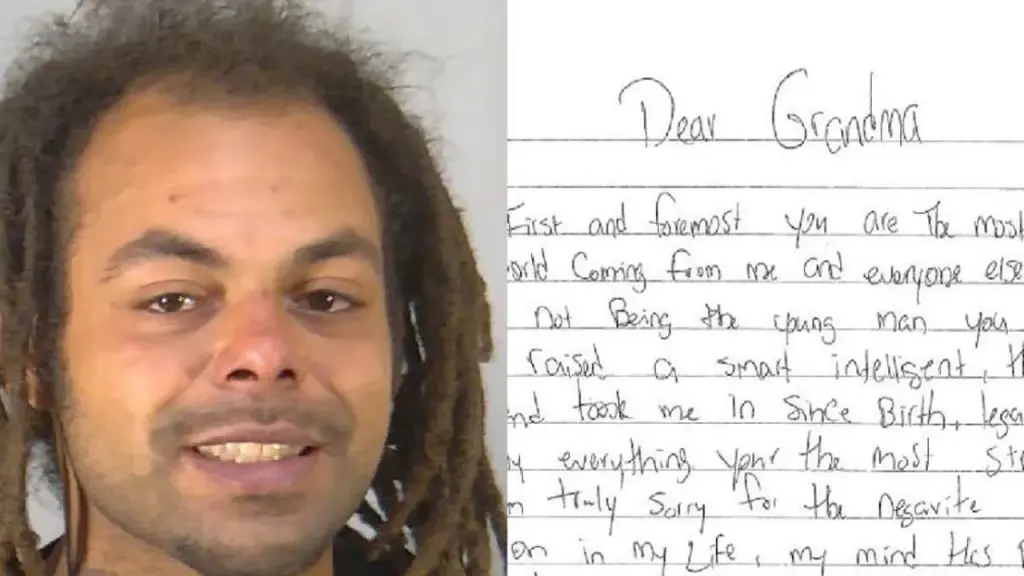 Dear Grandma
First and foremost you are The most
orld Coming from me and everyone else
not Being the young man you
raised a smart intelligent, th
nd toook me In Since Birth, lega
y everything your the most str
n truly Sorry for the negavite
on in my Life, my mind Has